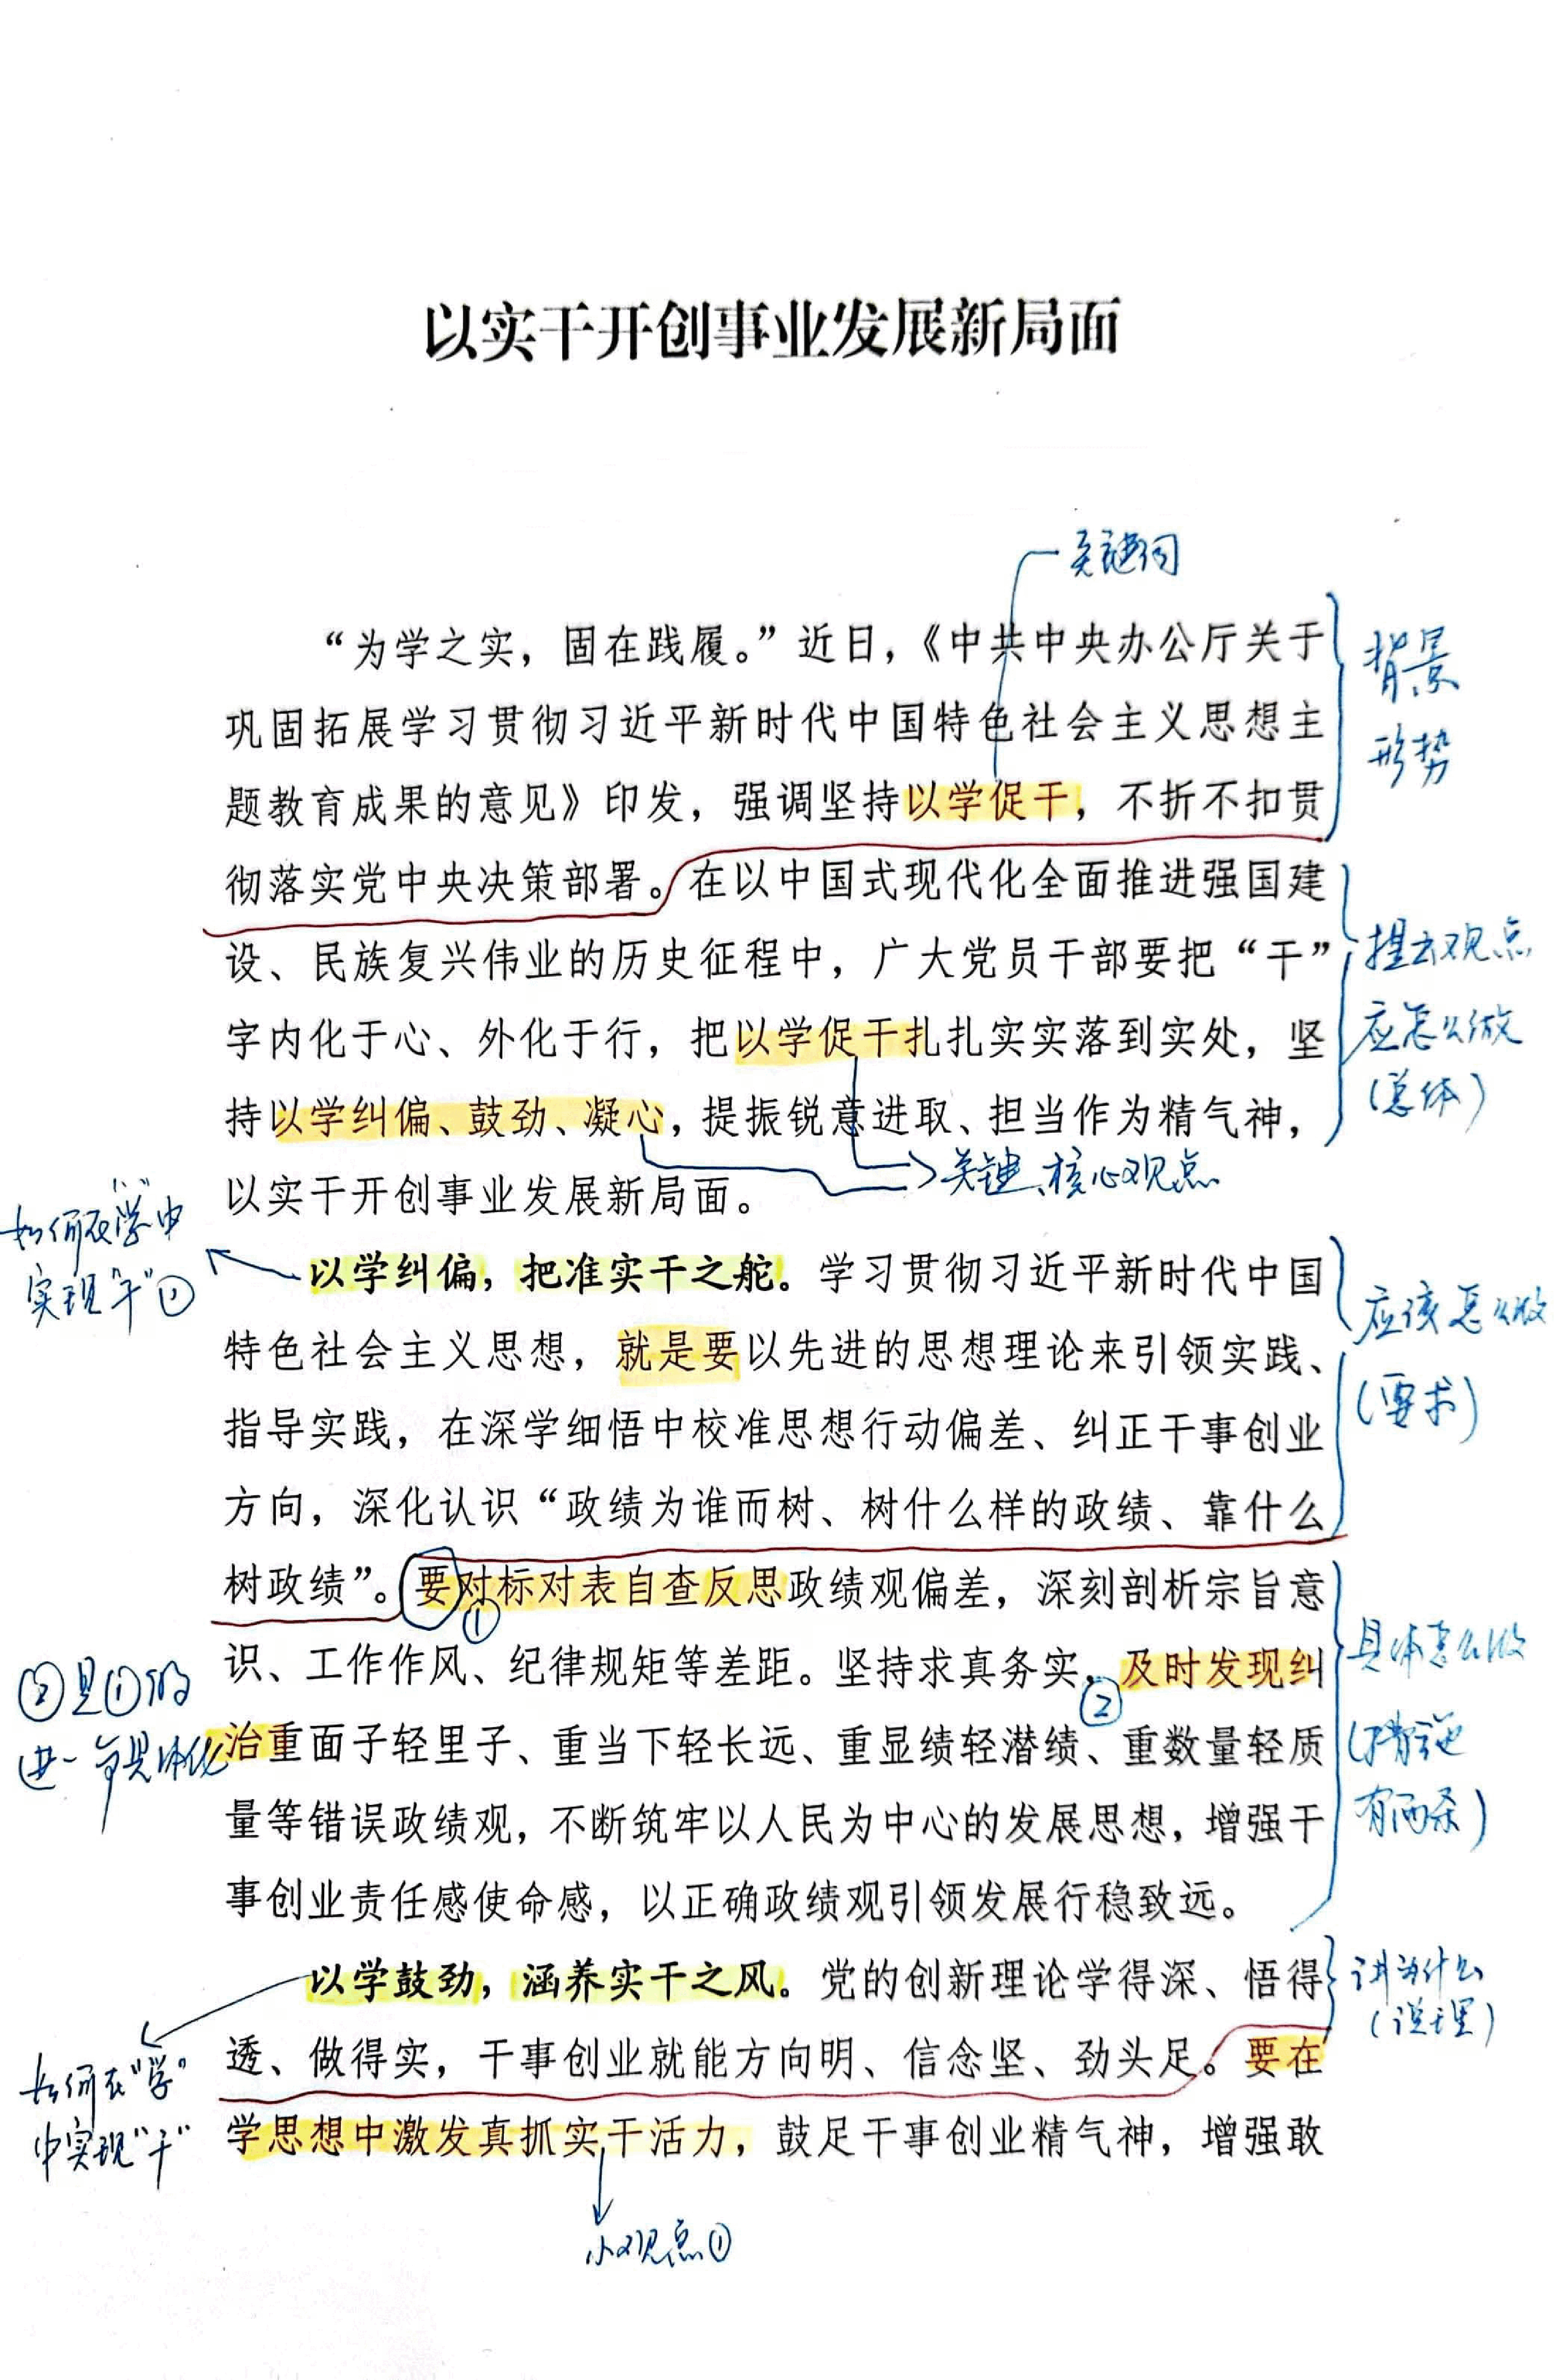 以实干开创事业发展新局面
关键词
“为学之实，固在践履。”近日，《中共中央办公厅关于
巩固拓展学习贯彻习近平新时代中国特色社会主义思想主
题教育成果的意见》印发，强调坚持以学促干，不折不扣贯
彻落实党中央决策部署。在以中国式现代化全面推进强国建
设、民族复兴伟业的历史征程中，广大党员干部要把“干”
字内化于心、外化于行，把以学促干扎扎实实落到实处，坚
持以学纠偏、鼓劲、凝心，提振锐意进取、担当作为精气神，
以实干开创事业发展新局面。
背景
形势
提出观点
应怎么做
(总体)
关键、核心观点
如何在“学”中
实现“干”①
以学纠偏，把准实干之舵。学习贯彻习近平新时代中国
特色社会主义思想，就是要以先进的思想理论来引领实践、
指导实践，在深学细悟中校准思想行动偏差、纠正干事创业
方向，深化认识“政绩为谁而树、树什么样的政绩、靠什么
树政绩”。要对标对表自查反思政绩观偏差，深刻剖析宗旨意
识、工作作风、纪律规矩等差距。坚持求真务实，及时发现纠
治重面子轻里子、重当下轻长远、重显绩轻潜绩、重数量轻质
量等错误政绩观，不断筑牢以人民为中心的发展思想，增强干
事创业责任感使命感，以正确政绩观引领发展行稳致远。
应该怎么做
(要求)
①
②
②是①的
进一步具体化
具体怎么做
(措施
有两条)
以学鼓劲，涵养实干之风。党的创新理论学得深、悟得
透、做得实，干事创业就能方向明、信念坚、劲头足。要在
学思想中激发真抓实干活力，鼓足干事创业精气神，增强敢
讲为什么
(说理)
如何在“学”
中实现“干”
小观点①